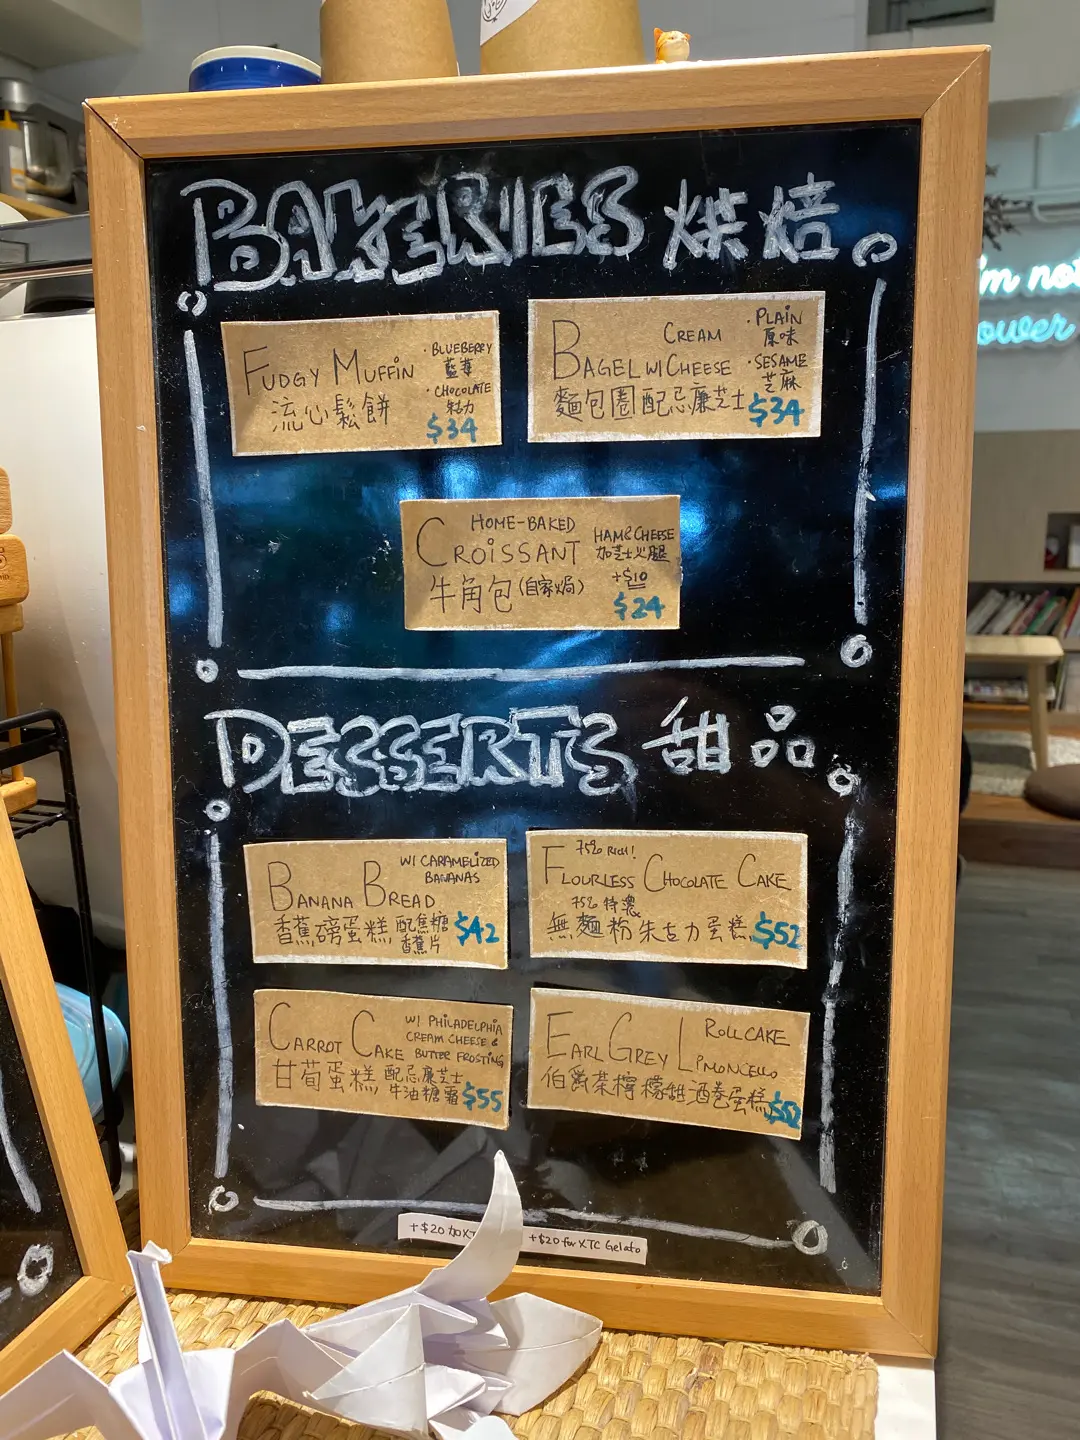 BAKERIES 烘焙
FUDGY MUFFIN
流心鬆餅
· BLUEBERRY
藍莓
· CHOCOLATE
朱古力
$34
CREAM
BAGEL W/ CHEESE
麵包圈配忌廉芝士
· PLAIN
原味
· SESAME
芝麻
$34
HOME-BAKED
CROISSANT
牛角包(自家焗)
HAM & CHEESE
加芝士火腿
+$10
$24
DESSERTS 甜品
W/ CARAMELIZED
BANANAS
BANANA BREAD
香蕉磅蛋糕 配焦糖
香蕉片
$42
75% RICH!
FLOURLESS CHOCOLATE CAKE
75% 特濃
無麵粉朱古力蛋糕
$52
CARROT CAKE
W/ PHILADELPHIA
CREAM CHEESE &
BUTTER FROSTING
甘荀蛋糕 配忌廉芝士
牛油糖霜
$55
ROLLCAKE
EARL GREY LIMONCELLO
伯爵茶檸檬甜酒卷蛋糕
$52
+$20 加XT
+$20 for XTC Gelato
I'm not
ower